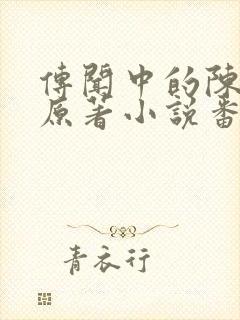 傳聞中的陳
原著小說番
青衣行